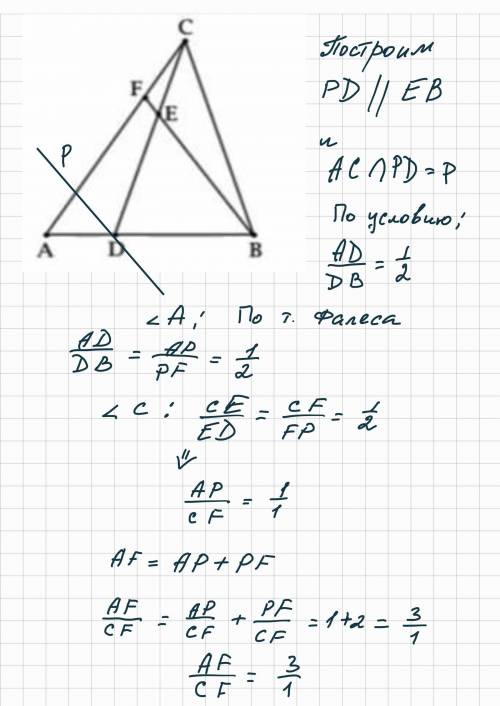 C
F
E
P
A D B
Построим
PD || EB
и
AC ∩ PD = P
По условию;
AD/DB = 1/2
∠A; По т. Фалеса
AD/DB = AP/PF = 1/2
∠C: CE/ED = CF/FP = 1/2
⇓
AP/CF = 1/1
AF = AP + PF
AF/CF = AP/CF + PF/CF = 1+2 = 3/1
AF/CF = 3/1